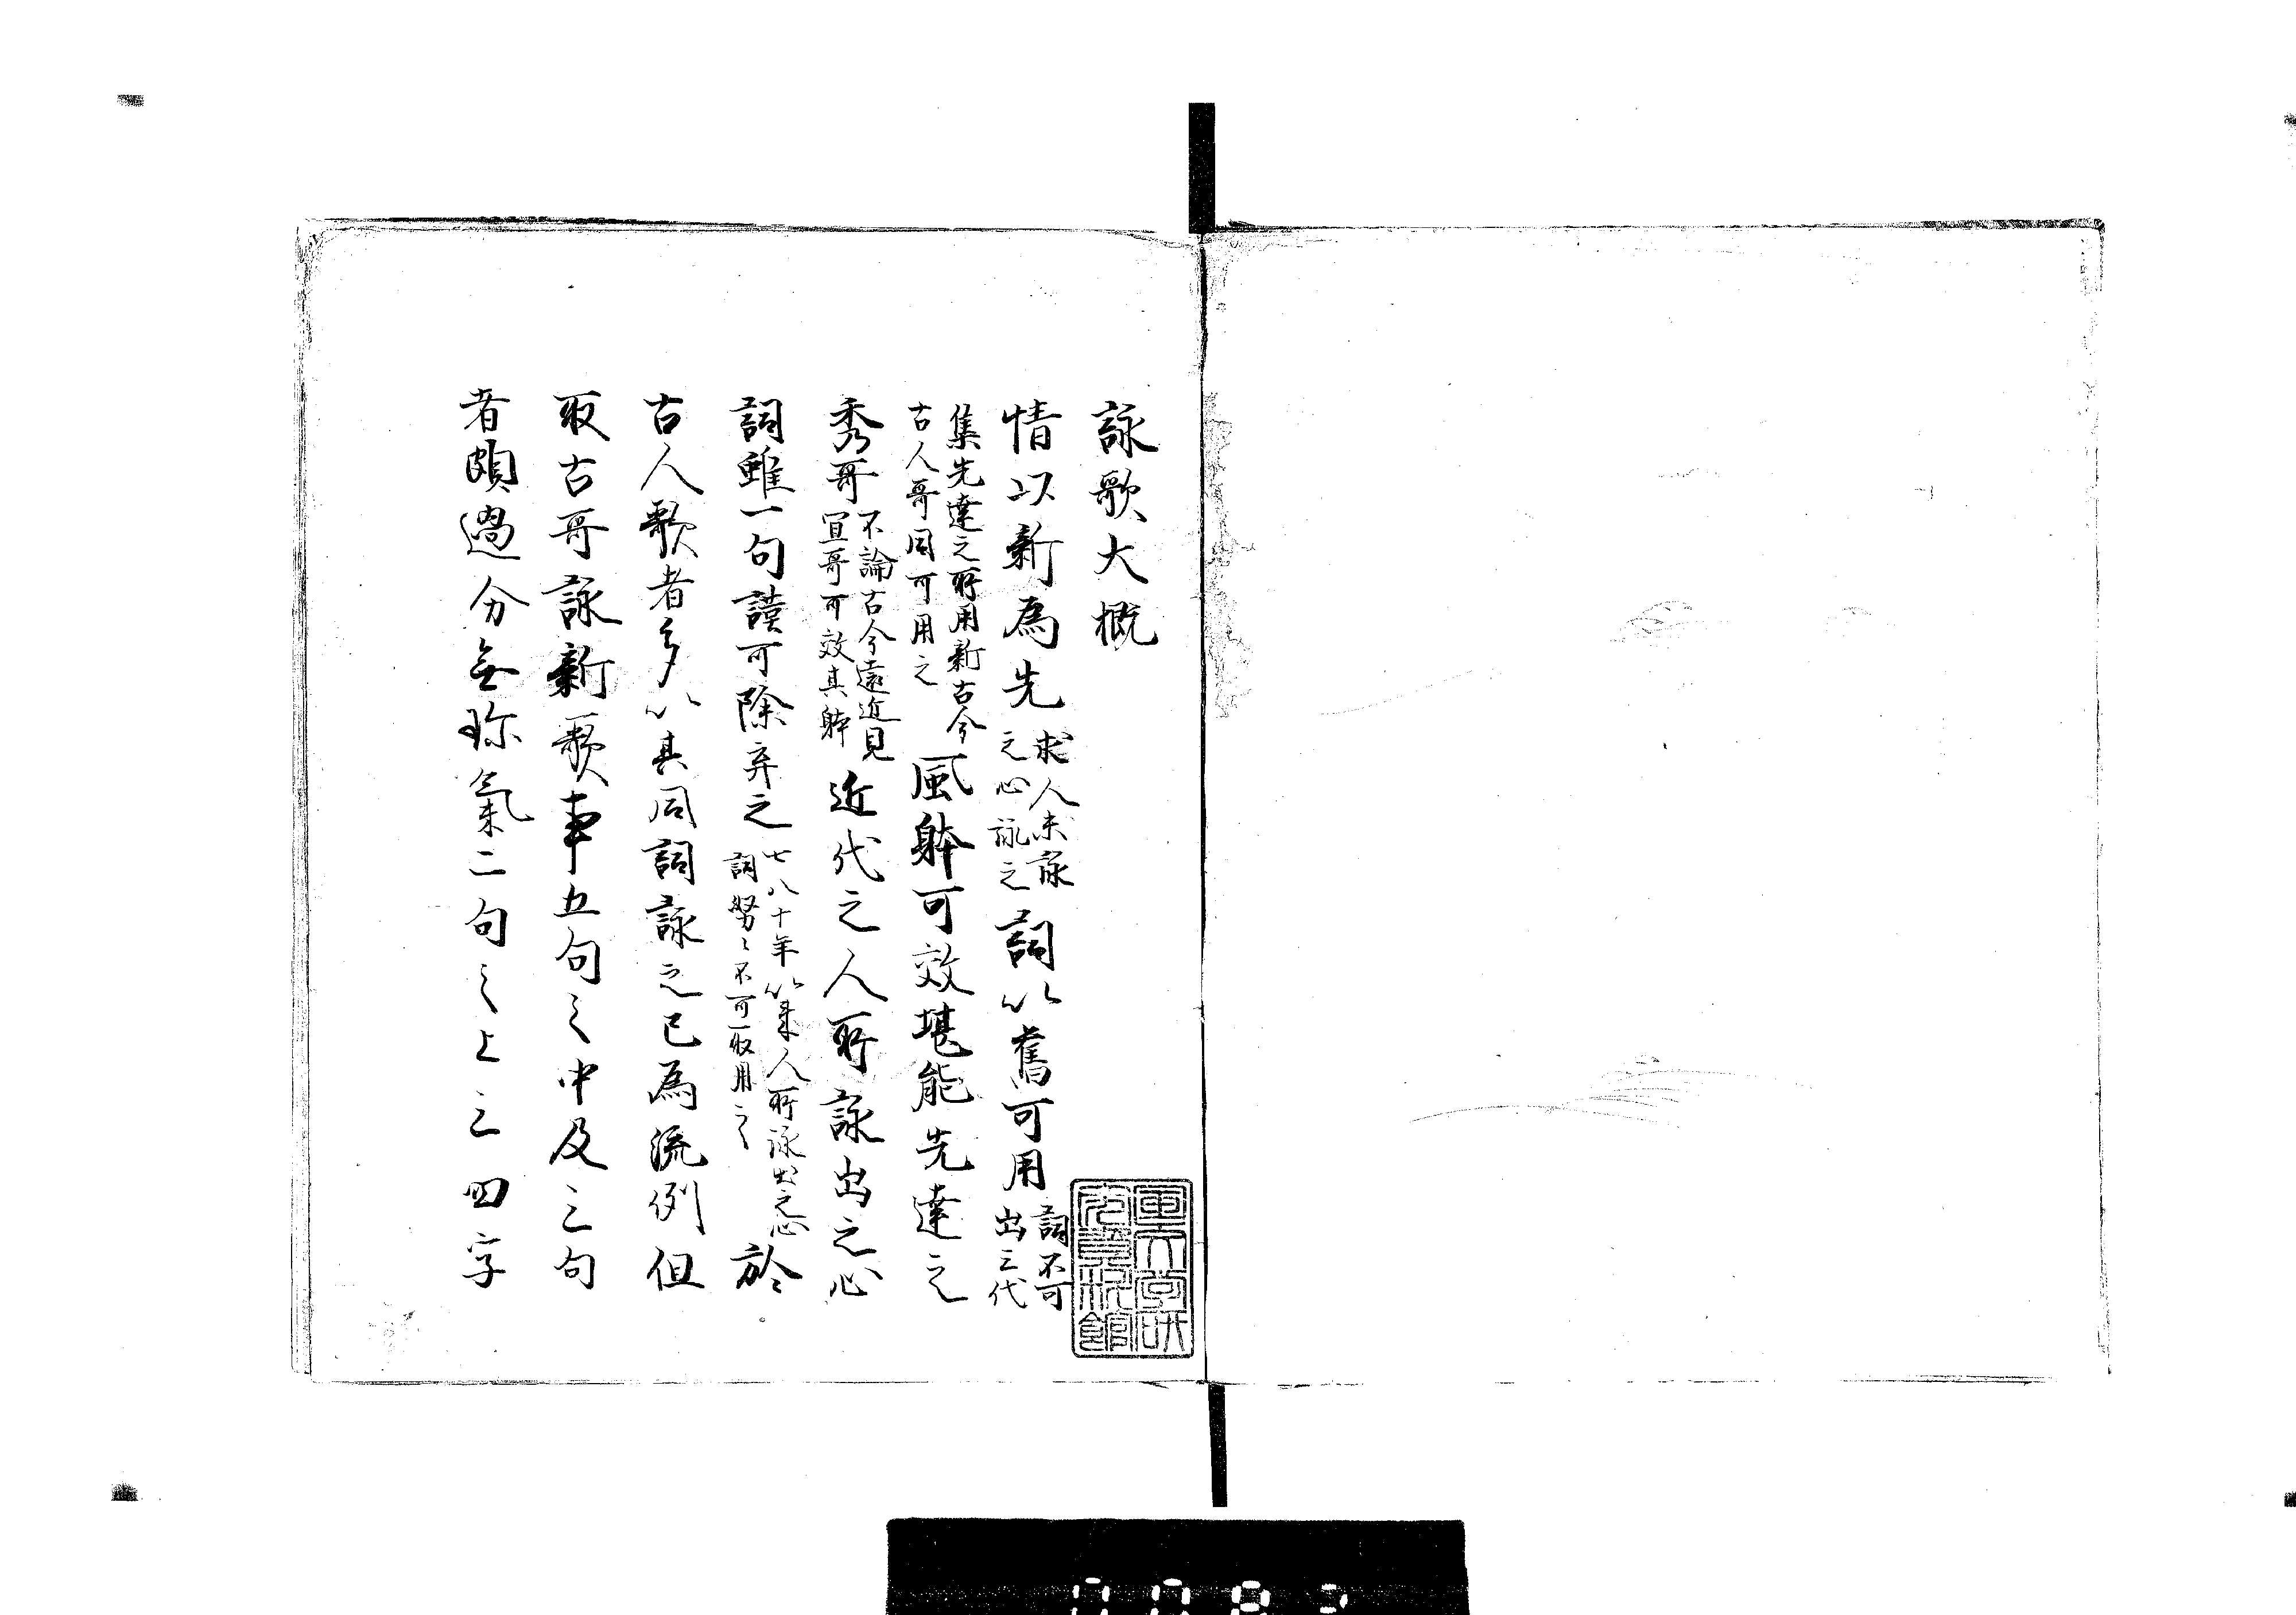 詠歌大概
情以新為先 求人未詠之心詠之 詞以舊可用 詞不可出三代
集先達之所用新古今古人哥同可用之 風躰可效堪能先達之
秀哥 不論古今遠近見宜哥可效其躰 近代之人所詠出之心
詞雖一句謹可除弃之 七八十年以来人所詠出之心詞努々不可取用之 於
古人歌者多以其同詞詠之已為流例但
取古哥詠新歌事五句之中及三句
者頗過分無珎氣二句之上三四字